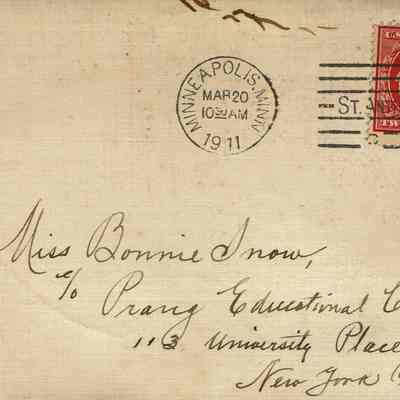 MINNEAPOLIS, MINN
MAR 20
10 30 AM
1911
ST. AN
U.S.
TW
Miss Bonnie Snow,
c/o Prang Educational C
113 University Place
New York